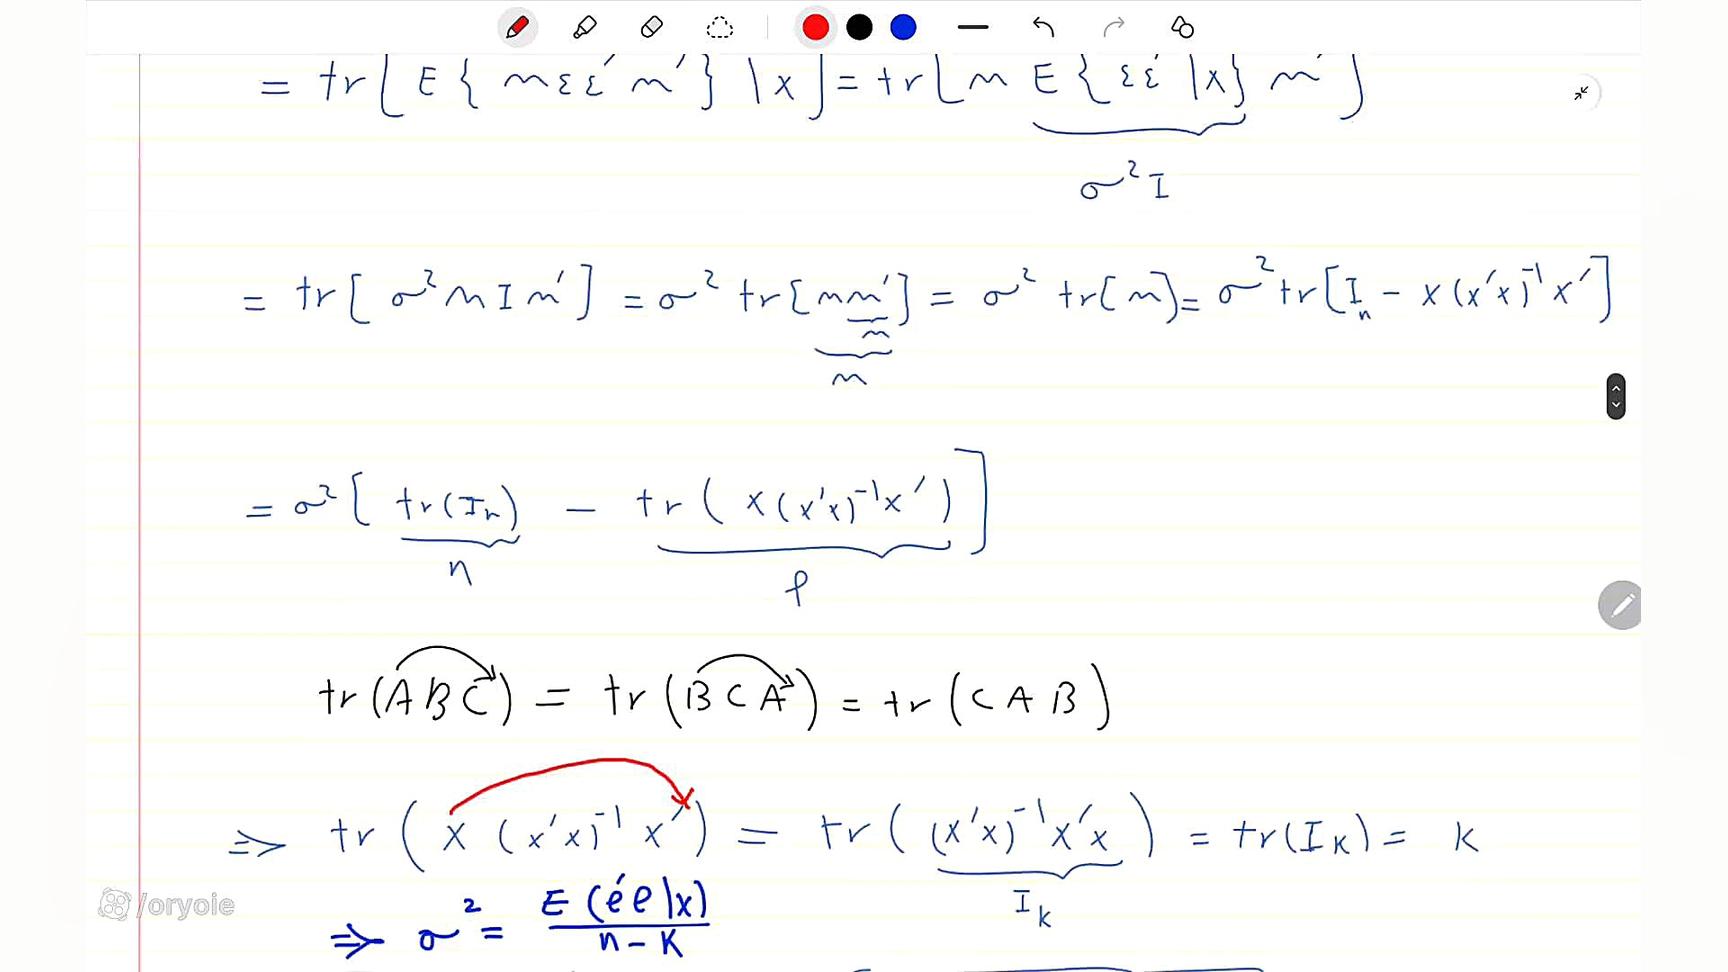 = tr[ E { mεε′m′ } |x ] = tr[ m E { εε′ |x } m′ ]
σ² I
= tr[ σ² m I m′ ] = σ² tr[ mm′ ] = σ² tr[ m ] = σ² tr[ Iₙ - x (x′x)⁻¹ x′ ]
m
m
= σ² [ tr(Iₙ) - tr( x (x′x)⁻¹ x′ ) ]
n
tr(ABC) = tr(BCA) = tr(CAB)
⇒ tr( x (x′x)⁻¹ x′ ) = tr( (x′x)⁻¹ x′x ) = tr(I_K) = k
I_K
/oryoie
⇒ σ² = E(e′e|x) / n-K